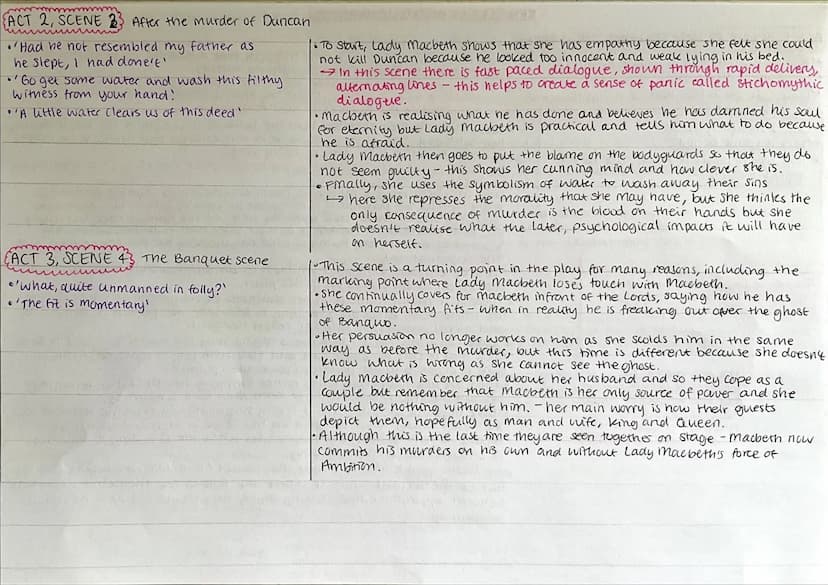 ACT 2, SCENE 2 After the murder of Duncan
• 'Had he not resembled my father as
he slept, I had done it'
• 'Go get some water and wash this filthy
witness from your hand!'
• 'A little water clears us of this deed'
• To start, Lady Macbeth shows that she has empathy because she felt she could
not kill Duncan because he looked too innocent and weak lying in his bed.
→ In this scene there is fast paced dialogue, shown through rapid delivery,
alternating lines - this helps to create a sense of panic called stichomythic
dialogue.
• Macbeth is realising what he has done and believes he has damned his soul
for eternity but Lady Macbeth is practical and tells him what to do because
he is afraid.
• Lady Macbeth then goes to put the blame on the bodyguards so that they do
not seem guilty - this shows her cunning mind and how clever she is.
• Finally, she uses the symbolism of water to wash away their sins
↳ here she represses the morality that she may have, but she thinks the
only consequence of murder is the blood on their hands but she
doesn't realise what the later, psychological impacts it will have
on herself.
ACT 3, SCENE 4 The Banquet scene
• 'What, quite unmanned in folly?'
• 'The fit is momentary'
• This scene is a turning point in the play for many reasons, including the
marking point where Lady Macbeth loses touch with Macbeth.
• She continually covers for Macbeth infront of the Lords, saying how he has
these momentary fits - when in reality he is freaking out over the ghost
of Banquo.
• Her persuasion no longer works on him as she scolds him in the same
way as before the murder, but this time is different because she doesn't
know what is wrong as she cannot see the ghost.
• Lady Macbeth is concerned about her husband and so they cope as a
couple but remember that Macbeth is her only source of power and she
would be nothing without him. - her main worry is how their guests
depict them, hopefully as man and wife, King and Queen.
• Although this is the last time they are seen together on stage - Macbeth now
commits his murders on his own and without Lady Macbeth's force of
Ambition.